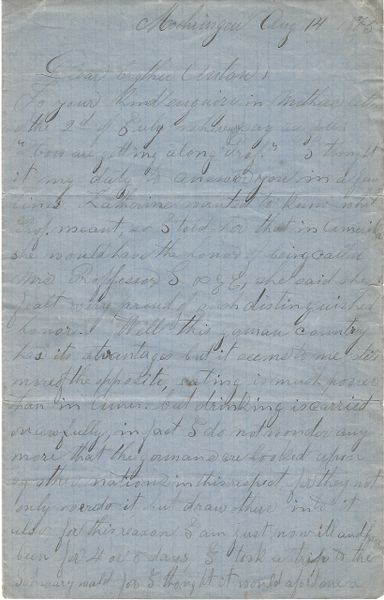 Aug 14
Dear brother Anton!
To your kind enquiere in
the 2d of July wherein you
"How are you getting along Prof." I thought
it my duty to answer you in a few
lines. Catherine wanted to know what
Prof. meant, so I told her that in America
she would have the honor of being called
Mrs Proffessor she said she
feat very proud of such distinguished
honor. Well this german country
has its advantages but it seems to me still
more the opposite, eating is much poorer
than in Amer. but drinking is carried
on awfully, in fact I do not wonder any
more that the germans are looked upon
by other nations in this respect, for they not
only overdo it but draw others into it
also for this reason I am just now ill and have
been for 4 or 5 days, I took a trip to the
wald for I thought it would a